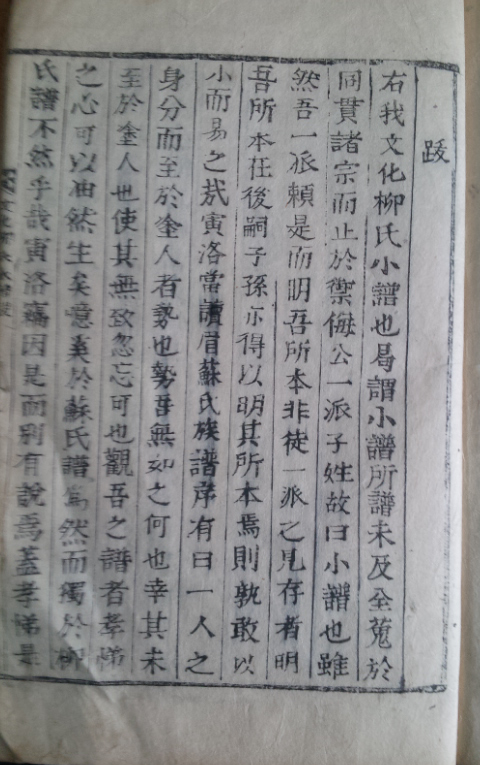 跋
右我文化柳氏小譜也曷謂小譜所譜未及全蒐於
同貫諸宗而止於禦侮公一派子姓故曰小譜也雖
然吾一派賴是而明吾所本非徒一派之見存者明
吾所本在後嗣子孫亦得以明其所本焉則孰敢以
小而易之哉寅洛嘗讀眉蘇氏族譜序有曰一人之
身分而至於塗人者勢也勢吾無如之何也幸其未
至於塗人也使其無致忽忘可也觀吾之譜者孝悌
之心可以油然生矣噫奚於蘇氏譜爲然而獨於柳
氏譜不然乎哉寅洛竊因是而別有說焉蓋孝悌是